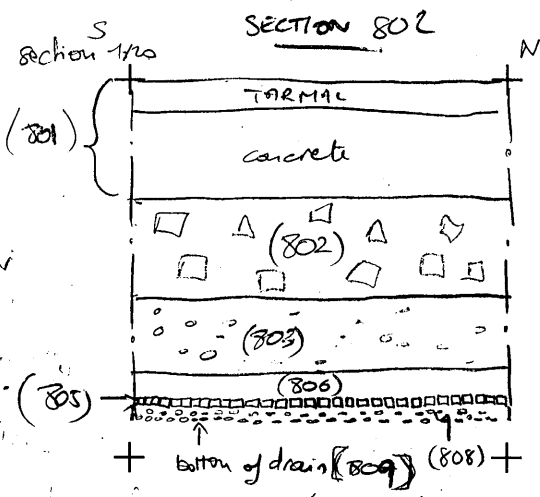 SECTION 802
S
section 1/20
N
TARMAC
(801)
concrete
(802)
(803)
(806)
(805)
bottom of drain [(809)] (808)